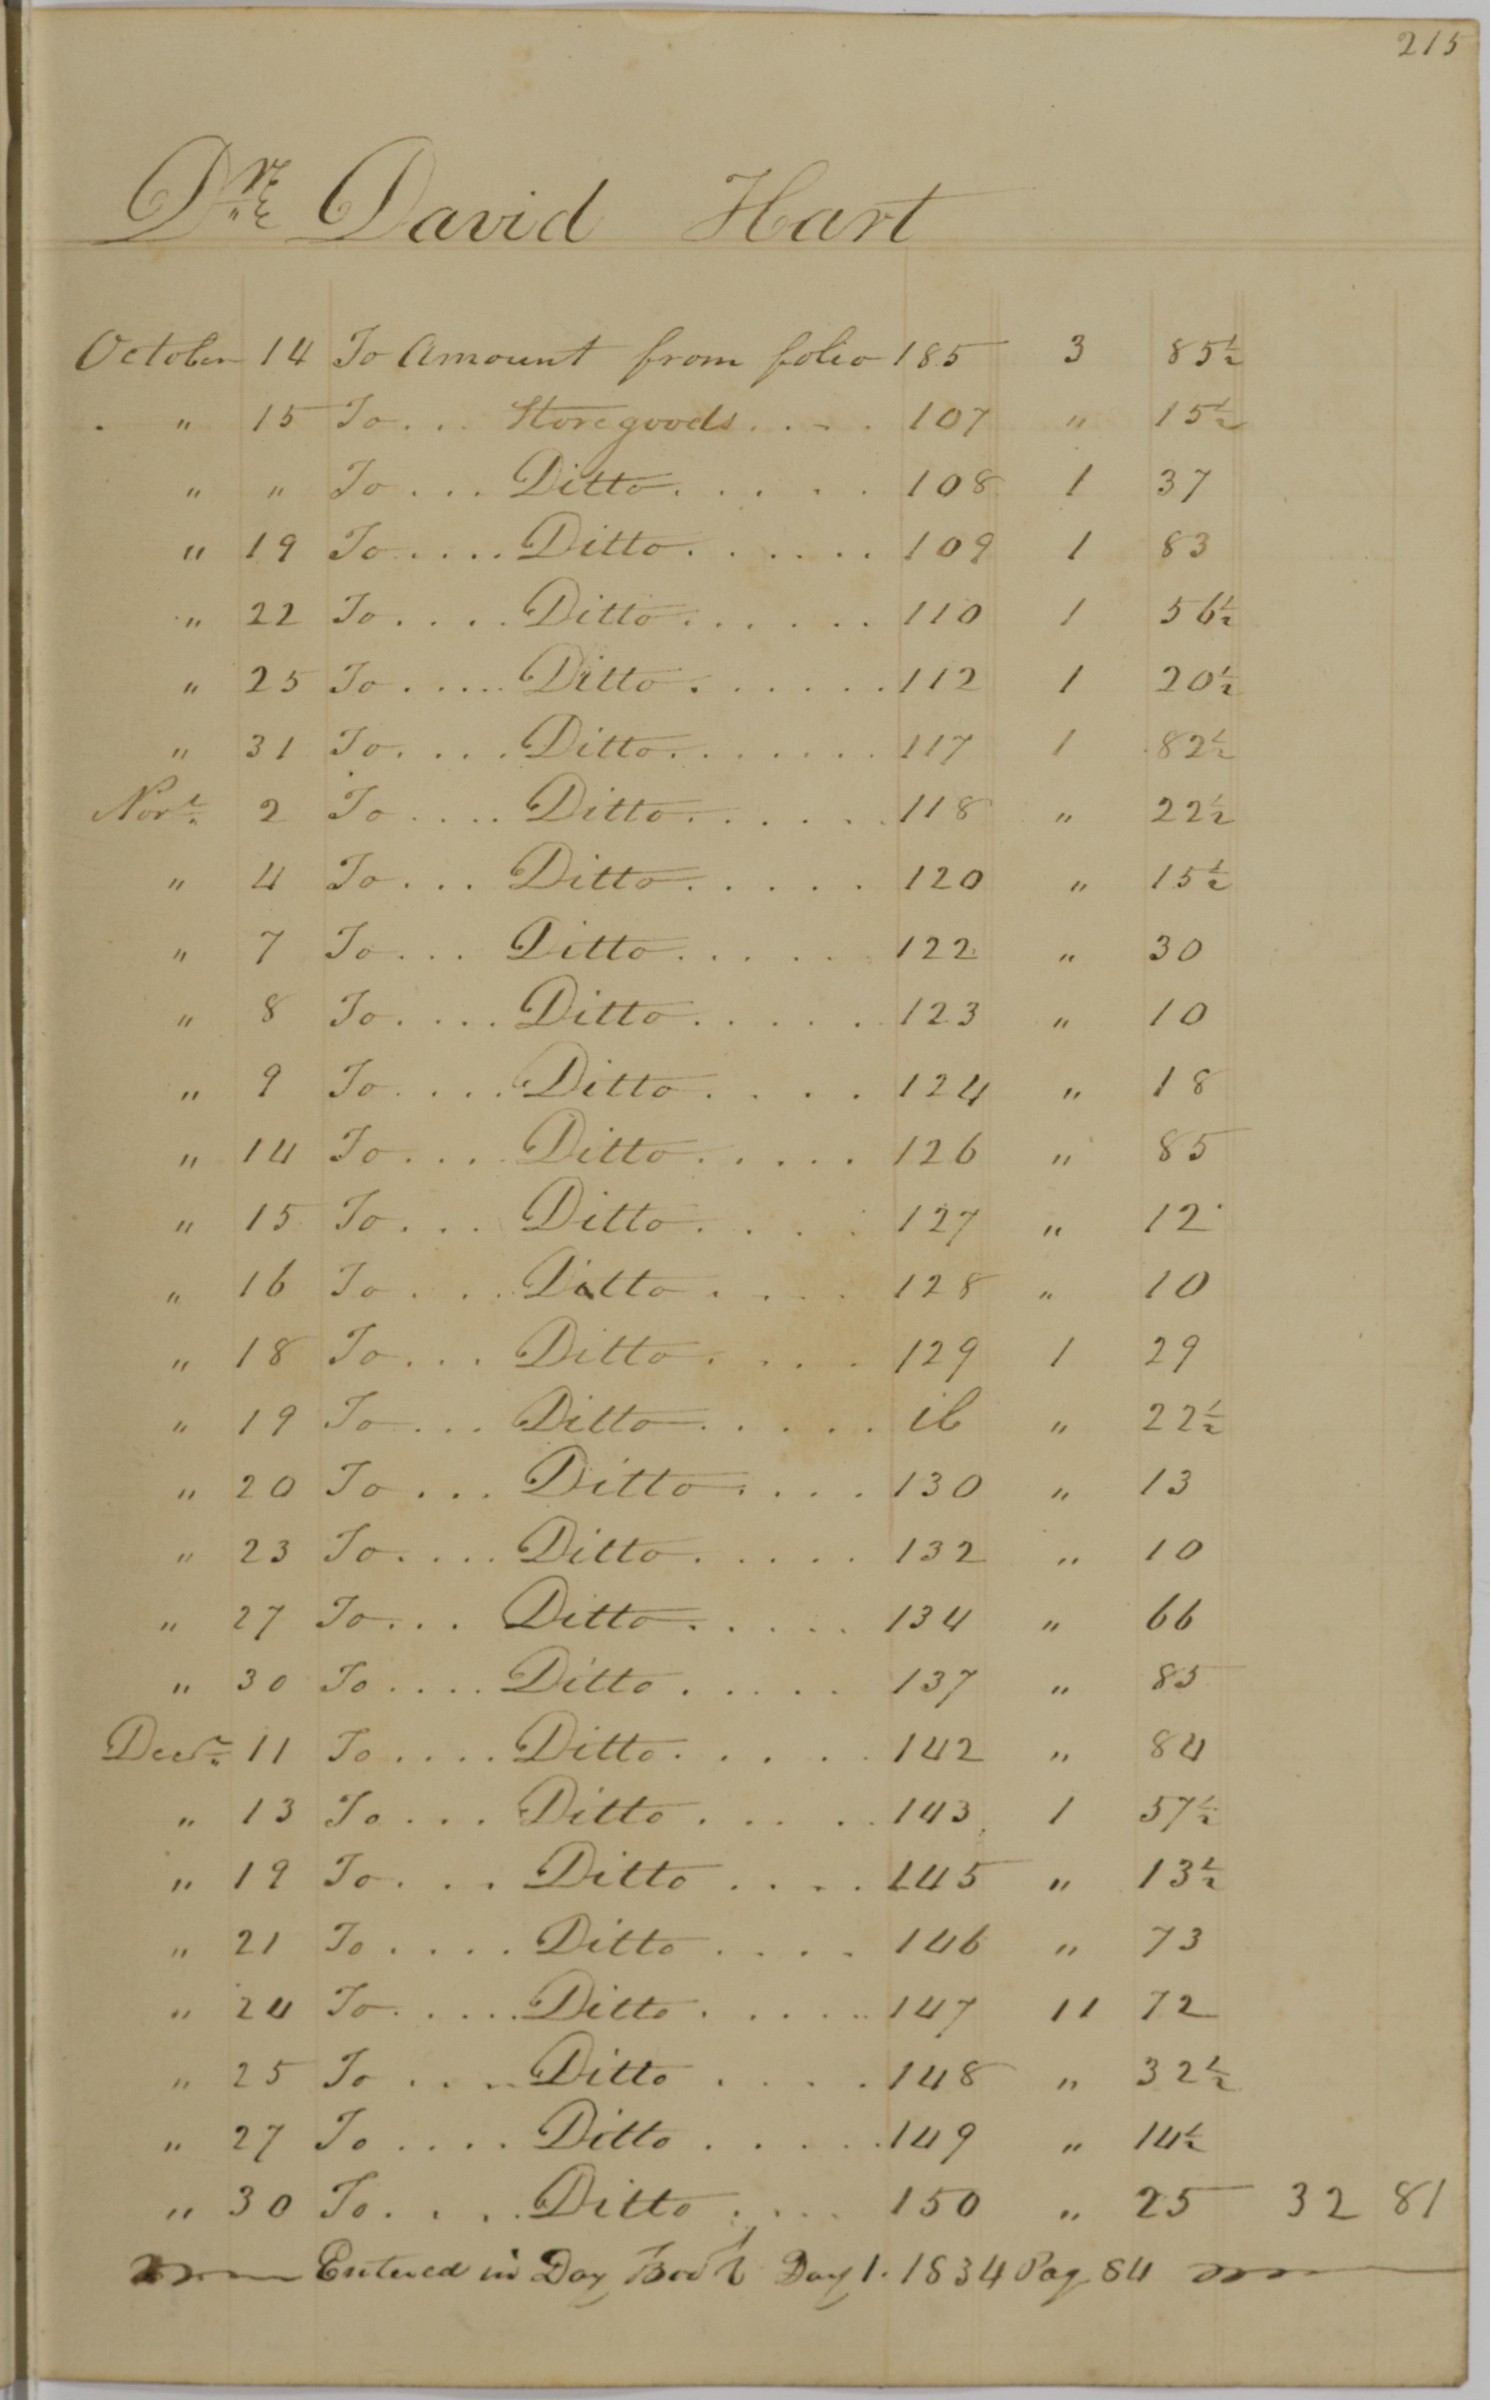 215
Dr. David Hart
October 14 To Amount from folio 185 3 85½
" 15 To... Storegoods.... 107 " 15½
" " To... Ditto..... 108 1 37
" 19 To.... Ditto...... 109 1 83
" 22 To.... Ditto...... 110 1 56½
" 25 To..... Ditto...... 112 1 20½
" 31 To.... Ditto....... 117 1 82½
Novr. 2 To.... Ditto...... 118 " 22½
" 4 To... Ditto..... 120 " 15½
" 7 To... Ditto..... 122 " 30
" 8 To.... Ditto..... 123 " 10
" 9 To.... Ditto.... 124 " 18
" 14 To... Ditto..... 126 " 85
" 15 To... Ditto.... 127 " 12
" 16 To... Ditto.... 128 " 10
" 18 To... Ditto.... 129 1 29
" 19 To... Ditto..... ib " 22½
" 20 To... Ditto.... 130 " 13
" 23 To.... Ditto..... 132 " 10
" 27 To... Ditto..... 134 " 66
" 30 To.... Ditto..... 137 " 85
Decr. 11 To.... Ditto..... 142 " 84
" 13 To... Ditto..... 143 1 57½
" 19 To... Ditto.... 145 " 13½
" 21 To.... Ditto.... 146 " 73
" 24 To..... Ditto..... 147 11 72
" 25 To.... Ditto.... 148 " 32½
" 27 To.... Ditto..... 149 " 14½
" 30 To.... Ditto.... 150 " 25 32 81
Entered in Day Book Day 1. 1834 Pag 84